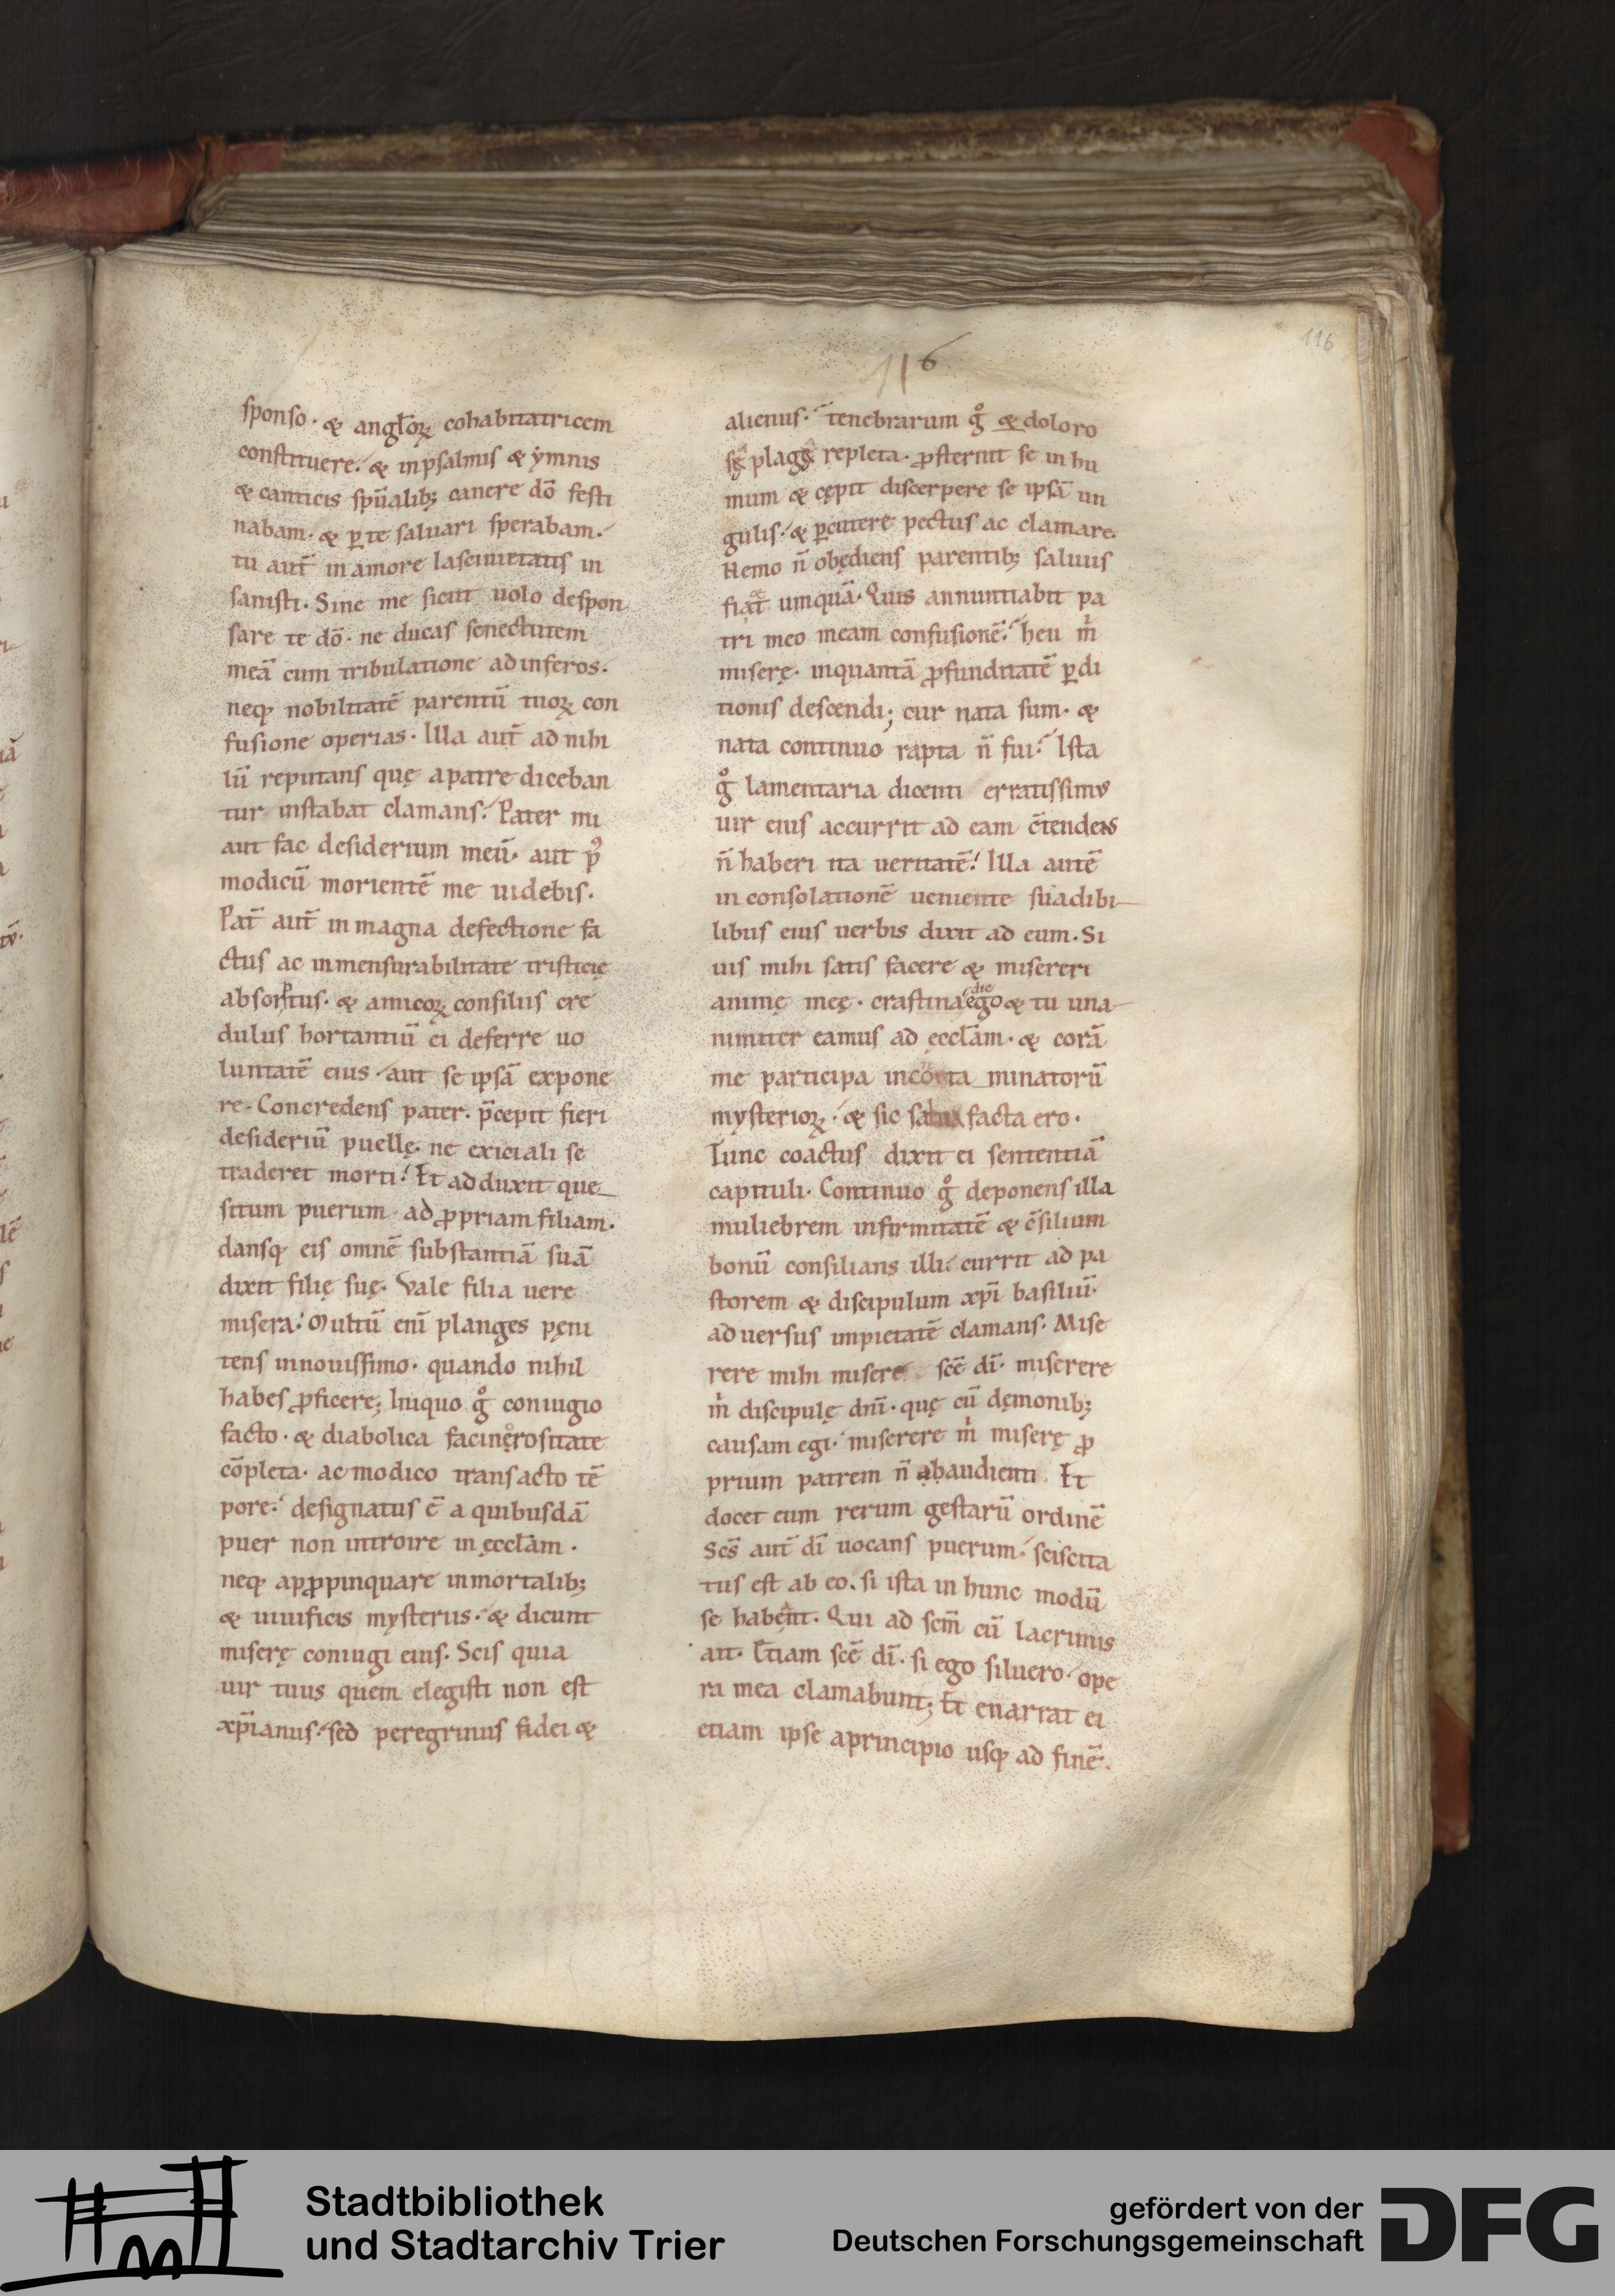 116
116
sponso· & anglorꝝ cohabitatricem
constituere· & in psalmis & ymnis
& canticis spūalib; canere dō festi
nabam· & ꝑ te saluari sperabam·
tu aut̄ in amore lasciuietatis in
sanisti· Sine me sicut uolo despon
sare te dō· ne ducas senectutem
meā cum tribulatione ad inferos·
neq; nobilitatē parentū tuoꝝ con
fusione operias· Illa aut̄ ad nihi
lū reputans quę a patre diceban
tur instabat clamans· Pater mi
aut fac desiderium meū· aut p̄
modicū morientē me uidebis·
Pat̄ aut̄ in magna defectione fa
ctus ac inmensurabilitate tristicię
absorptus· & amicoꝝ consiliis cre
dulus hortantiū ei deferre uo
luntatē eius· aut se ipsā expone
re· Concredens pater· p̄cepit fieri
desideriū puellę· ne exiciali se
traderet morti· Et adduxit que
situm puerum ad ꝓpriam filiam·
dansq; eis omnē substantiā suā
dixit filię suę· Vale filia uere
misera· Multū enī planges pęni
tens in nouissimo· quando nihil
habes ꝓficere; Iniquo gͦ coniugio
facto· & diabolica facinerositate
cōpleta· ac modico transacto tē
pore· designatus ē a quibusdā
puer non introire in ęccl̄am·
neq; apꝓpinquare inmortalib;
& uiuificis mysteriis· & dicunt
miserę coniugi eius· Scis quia
uir tuus quem elegisti non est
xp̄ianus· sed peregrinus fidei &
alienus· tenebrarum gͦ & doloro
sę plagę repleta· ꝓsternit se in hu
mum & cępit discerpere se ipsā un
gulis· & ꝑcutere pectus ac clamare·
Nemo n̄ obędiens parentib; saluus
fiat umquā· Quis annuntiabit pa
tri meo meam confusionē· heu m̄
miserę· inquantā ꝓfunditatē ꝑdi
tionis descendi; cur nata sum· &
nata continuo rapta n̄ fui· Ista
gͦ lamentaria dicenti erratissimus
uir eius accurrit ad eam c̄tendens
n̄ haberi ita ueritatē· Illa autē
in consolationē ueniente suadibi
libus eius uerbis dixit ad eum· Si
uis mihi satis facere & misereri
animę meę· crastina die ego & tu una
nimiter eamus ad ęccl̄am· & corā
me participa incōta minatorū
mysterioꝝ· & sic facta ero·
Tunc coactus dixit ei sententiā
capituli· Continuo gͦ deponens illa
muliebrem infirmitatē & c̄silium
bonū consilians illi· currit ad pa
storem & discipulum xp̄i basiliū·
aduersus impietatē clamans· Mise
rere mihi misere scē dī· miserere
m̄ discipulę dn̄i· quę cū dęmonib;
causam egi· miserere m̄ miserę ꝓ
prium patrem n̄ abaudienti· Et
docet eum rerum gestarū ordinē
Scs̄ aut̄ dī uocans puerum· sciscita
tus est ab eo· si ista in hunc modū
se habent· Qui ad scm̄ cū lacrimis
ait· Etiam scē dī· si ego siluero· ope
ra mea clamabunt; Et enarrat ei
etiam ipse a principio usq; ad finē·
Stadtbibliothek
und Stadtarchiv Trier
gefördert von der
Deutschen Forschungsgemeinschaft
DFG